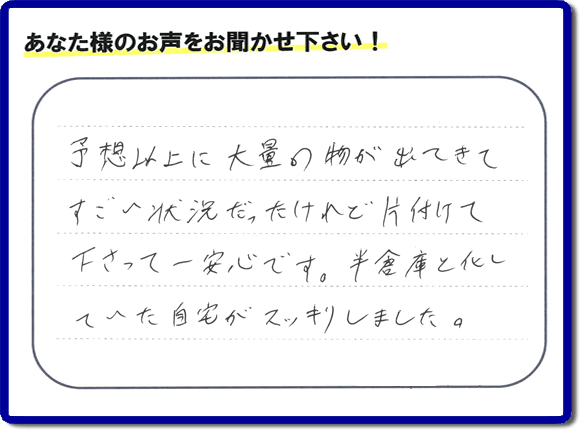 あなた様のお声をお聞かせ下さい！
予想以上に大量の物が出てきて
すごい状況だったけれど片付けて
下さって一安心です。半倉庫と化し
ていた自宅がスッキリしました。